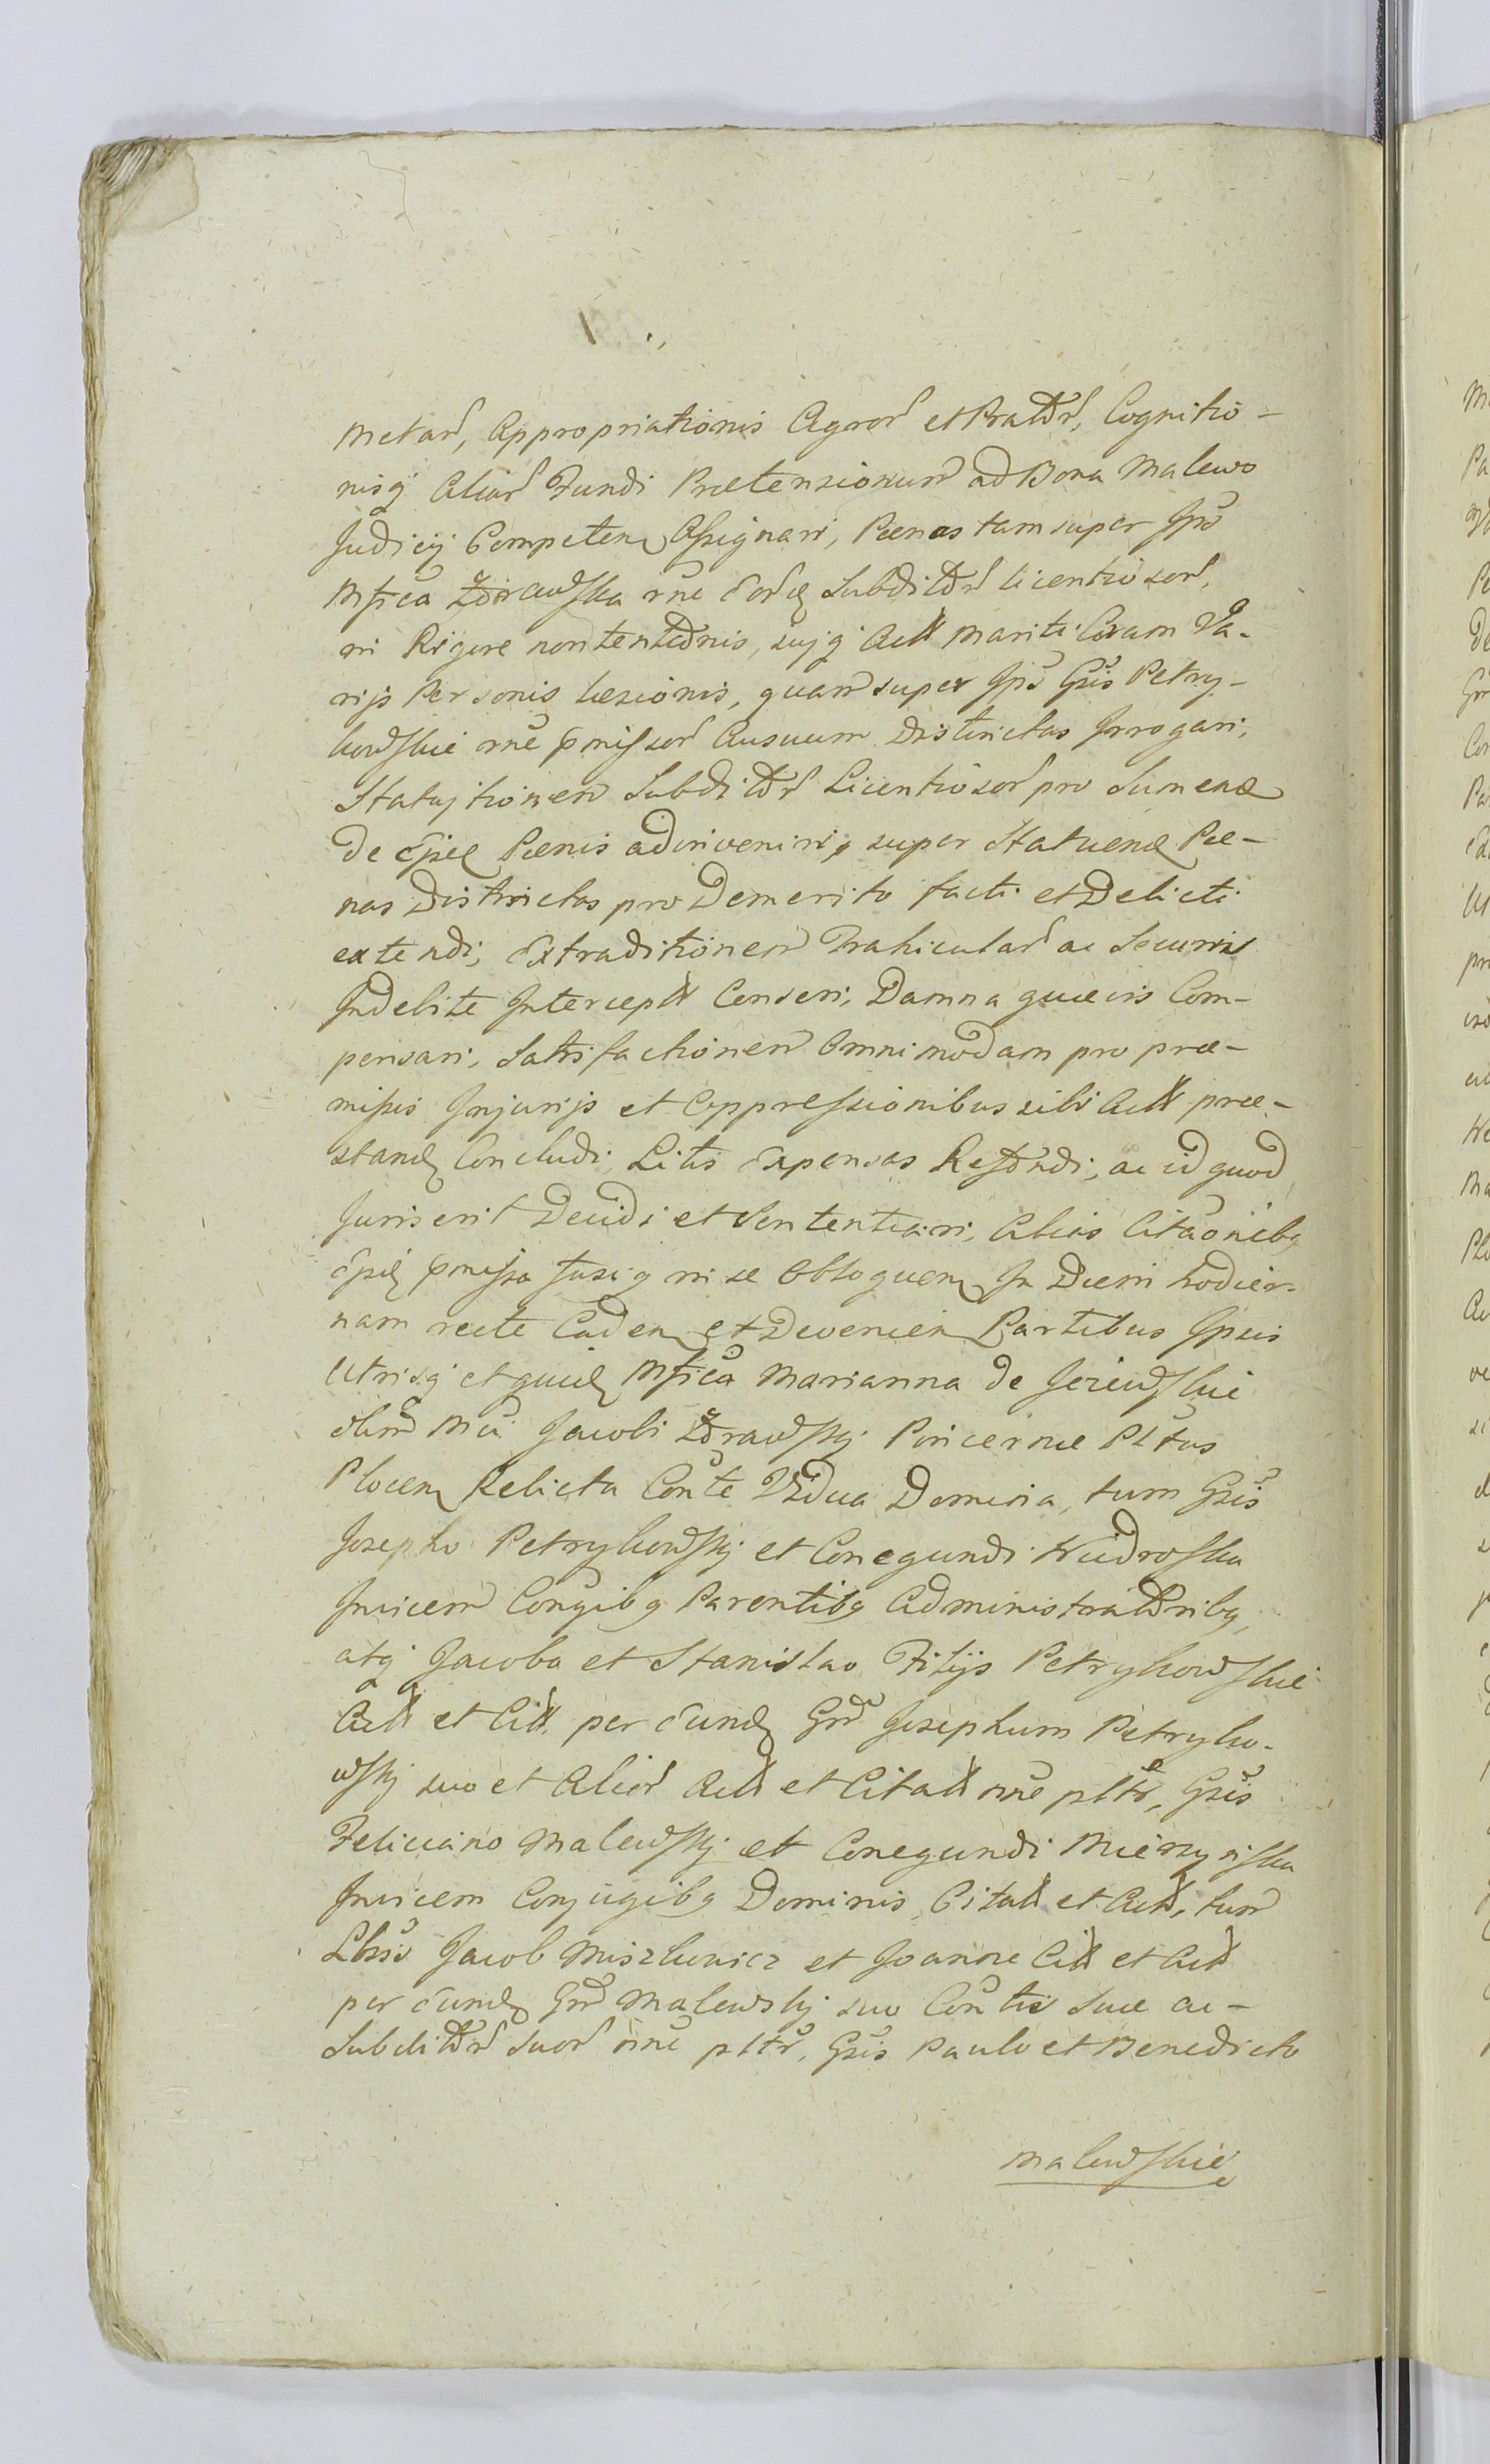 Metar, Appropriationis Agror et Prator, Cognitio-
nisq Aliar Fundi Prætensionum ad Bona Malewo
Judicij Competen Assignari, Pœnas tam super Ipsa
Mfica Zdrawska rne Subditor licentiosor,
in Rigore non tentionis, sujq Actt Mariti Coram Va-
rijs Personis læsionis, quam super Ipsis Gsis Petry-
kowskie rne pmissor Ausuum Districtas Irrogari,
Statujtionem Subditor Licentiosor pro Sumend
de Pœnis adinveniri, super Statuend Pœ-
nas Districtas pro Demerito facti et Delicti
extendi, Extraditionem Trahicular ac Securis
Indebite Intercept Censeri, Damna quævis Com-
pensari, Satisfactionem Omnimodam pro præ-
missis Injurijs et Oppressionibus sibi Actt præ-
stand Concludi, Litis Expensas Refundi, ac id quod
Juris erit Decidi et Sententiari, Alias Citaonibq
pmissa fusiq in se Obloquen In Diem hodier-
nam recte Caden et Devenien Partibus Ipsis
Utrisq et quid Mfica Marianna de Jeziewskie
olim Mci Jacobi Zdrawskj Pincernæ Pltus
Plocen Relicta Conte Vidua Domina, tum Gsis
Josepho Petrykowskj et Conegundi Nidroska
Invicem Conjgibq Parentibq Administratoribq,
atq Jacobo et Stanislao Filijs Petrykowskie
Actt et Citt, per Eund Gnd Josephum Petryko-
wskj suo et Alior Actt et Citatt nne pltr, Gsis
Feliciano Malewskj et Conegundi Mierzynska
Invicem Conjugibq Dominis Citatt et Actt, tum
Lbsso Jacob Miszkiewicz et Joanne Citt et Actt
per Eund Gnd Malewskj suo Contis Suæ ac
Subditor Suor nne pltr, Gsis Paulo et Benedicto
Malewskie